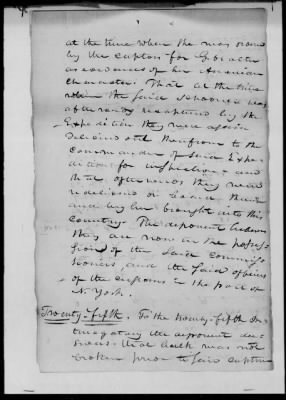 at the time when she was seized
by the captors for Gibraltar
as evidences of her American
character. That at the time
when the said schooner was
afterwards recaptured by the
Expedition they were again
delivered
Commander of said Expe-
dition for inspection and
that afterwards they were
redelivered on board
and by her brought into this
Country. The deponent believes
they are now in the posses-
sion of the said Commis-
sioners, and the said officers
of the customs in the port of
N. York.
Twenty-fifth. To the twenty-fifth In-
terrogatory the deponent an-
swers that bulk was not
broken prior to said capture